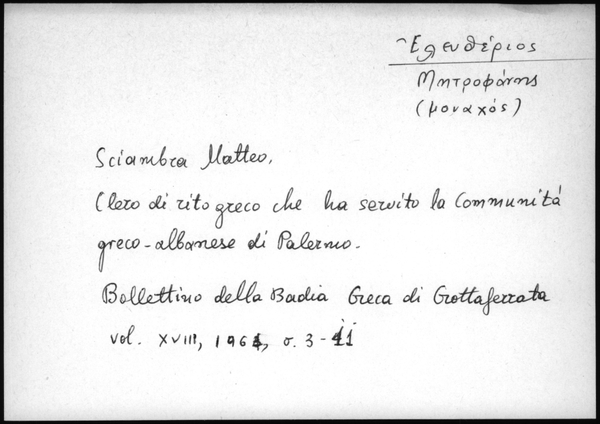 Ἐλευθέριος
Μητροφάνης
(μοναχός)
Sciambra Matteo,
Clero di rito greco che ha servito la Communitá
greco-albanese di Palermo.
Bollettino della Badia Greca di Grottaferrata
vol. XVIII, 1964, σ. 3-11